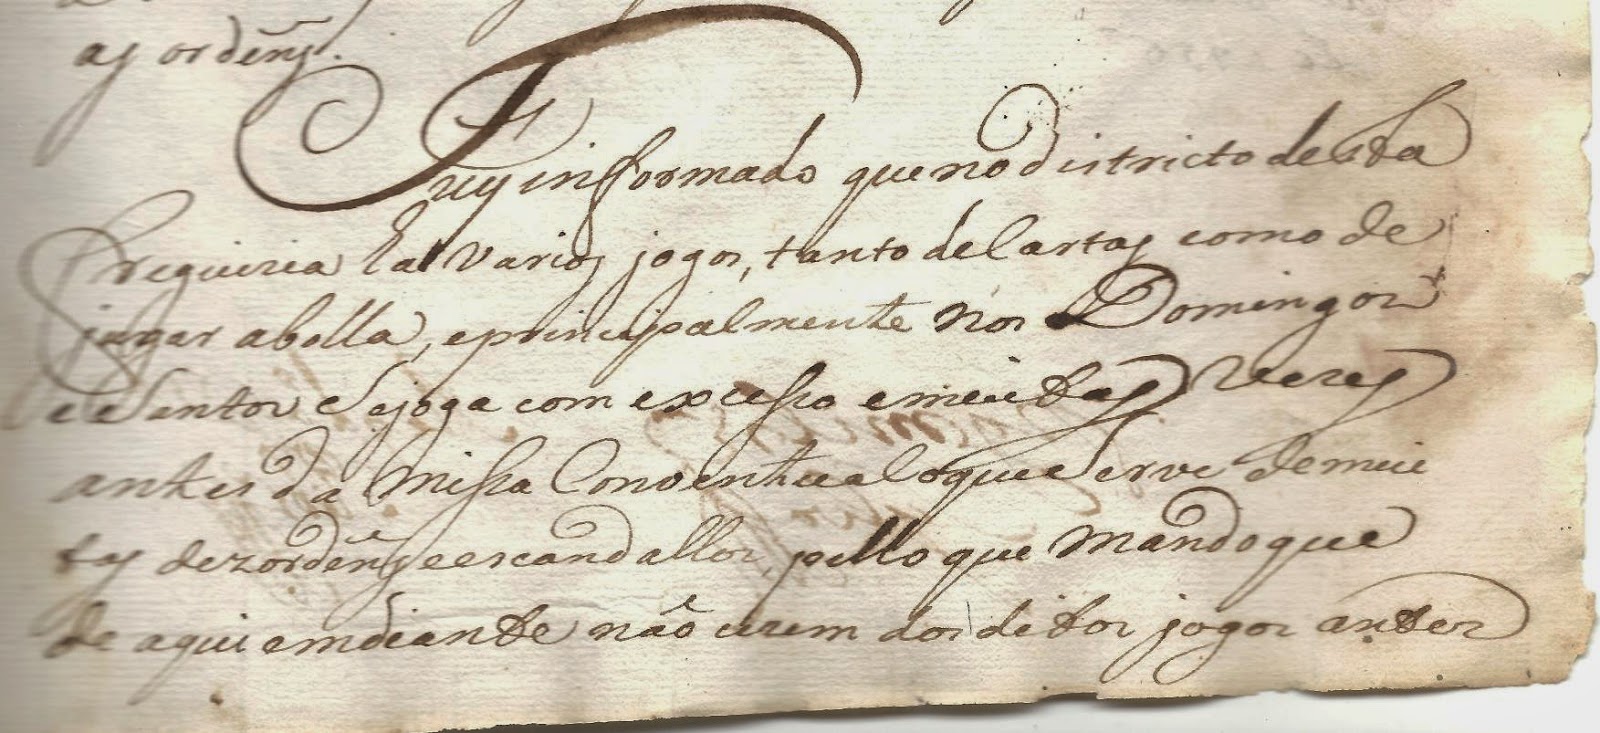 as ordens.
Fuy informado que no districto desta
Freguezia ha varios jogos, tanto de Cartas como de
jugar a bolla, e principalmente nos Domingos
e Santos se joga com excesso e muitas vezes
antes da Missa Conventual o que serve de mui
tas dezordens e escandallos, pello que Mando que
de aqui em diante não uzem dos ditos jogos antes